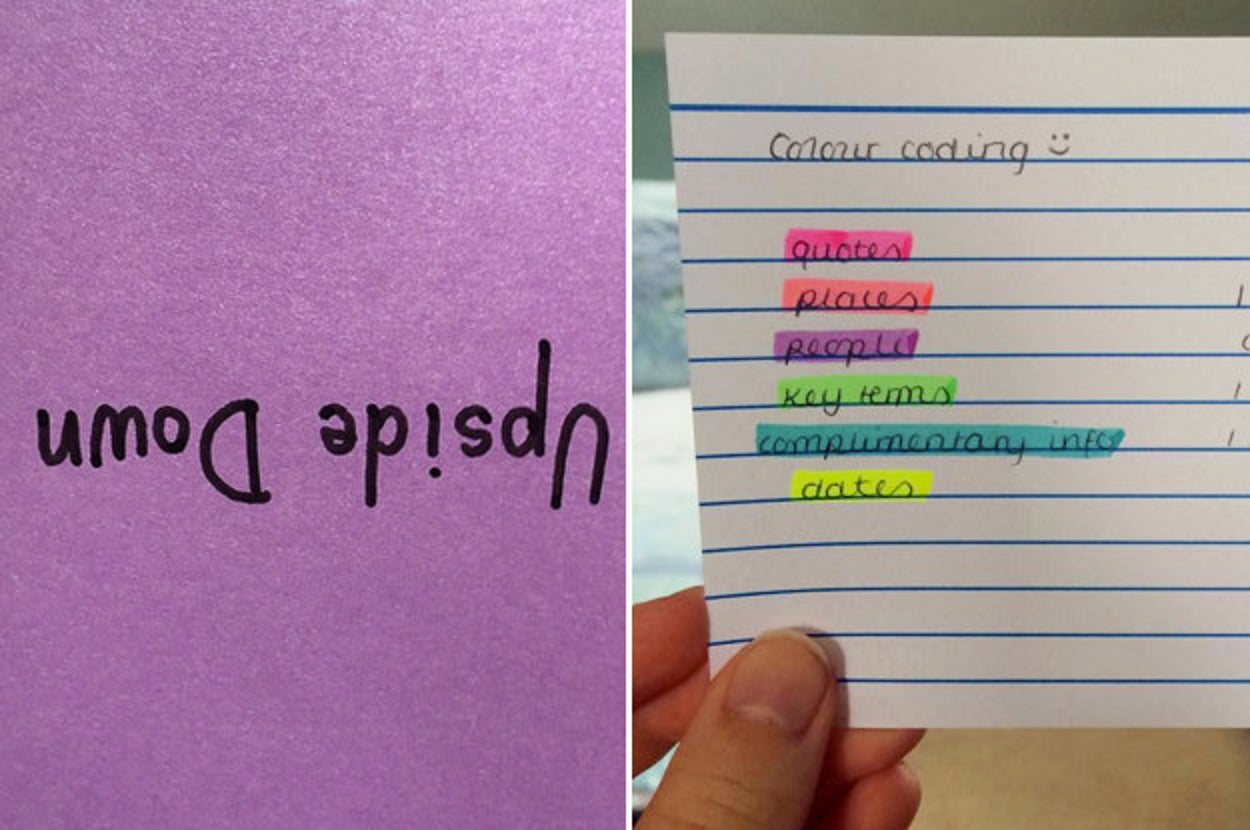 Upside Down
Colour coding :)
quotes
places
people
key terms
complimentary info
dates